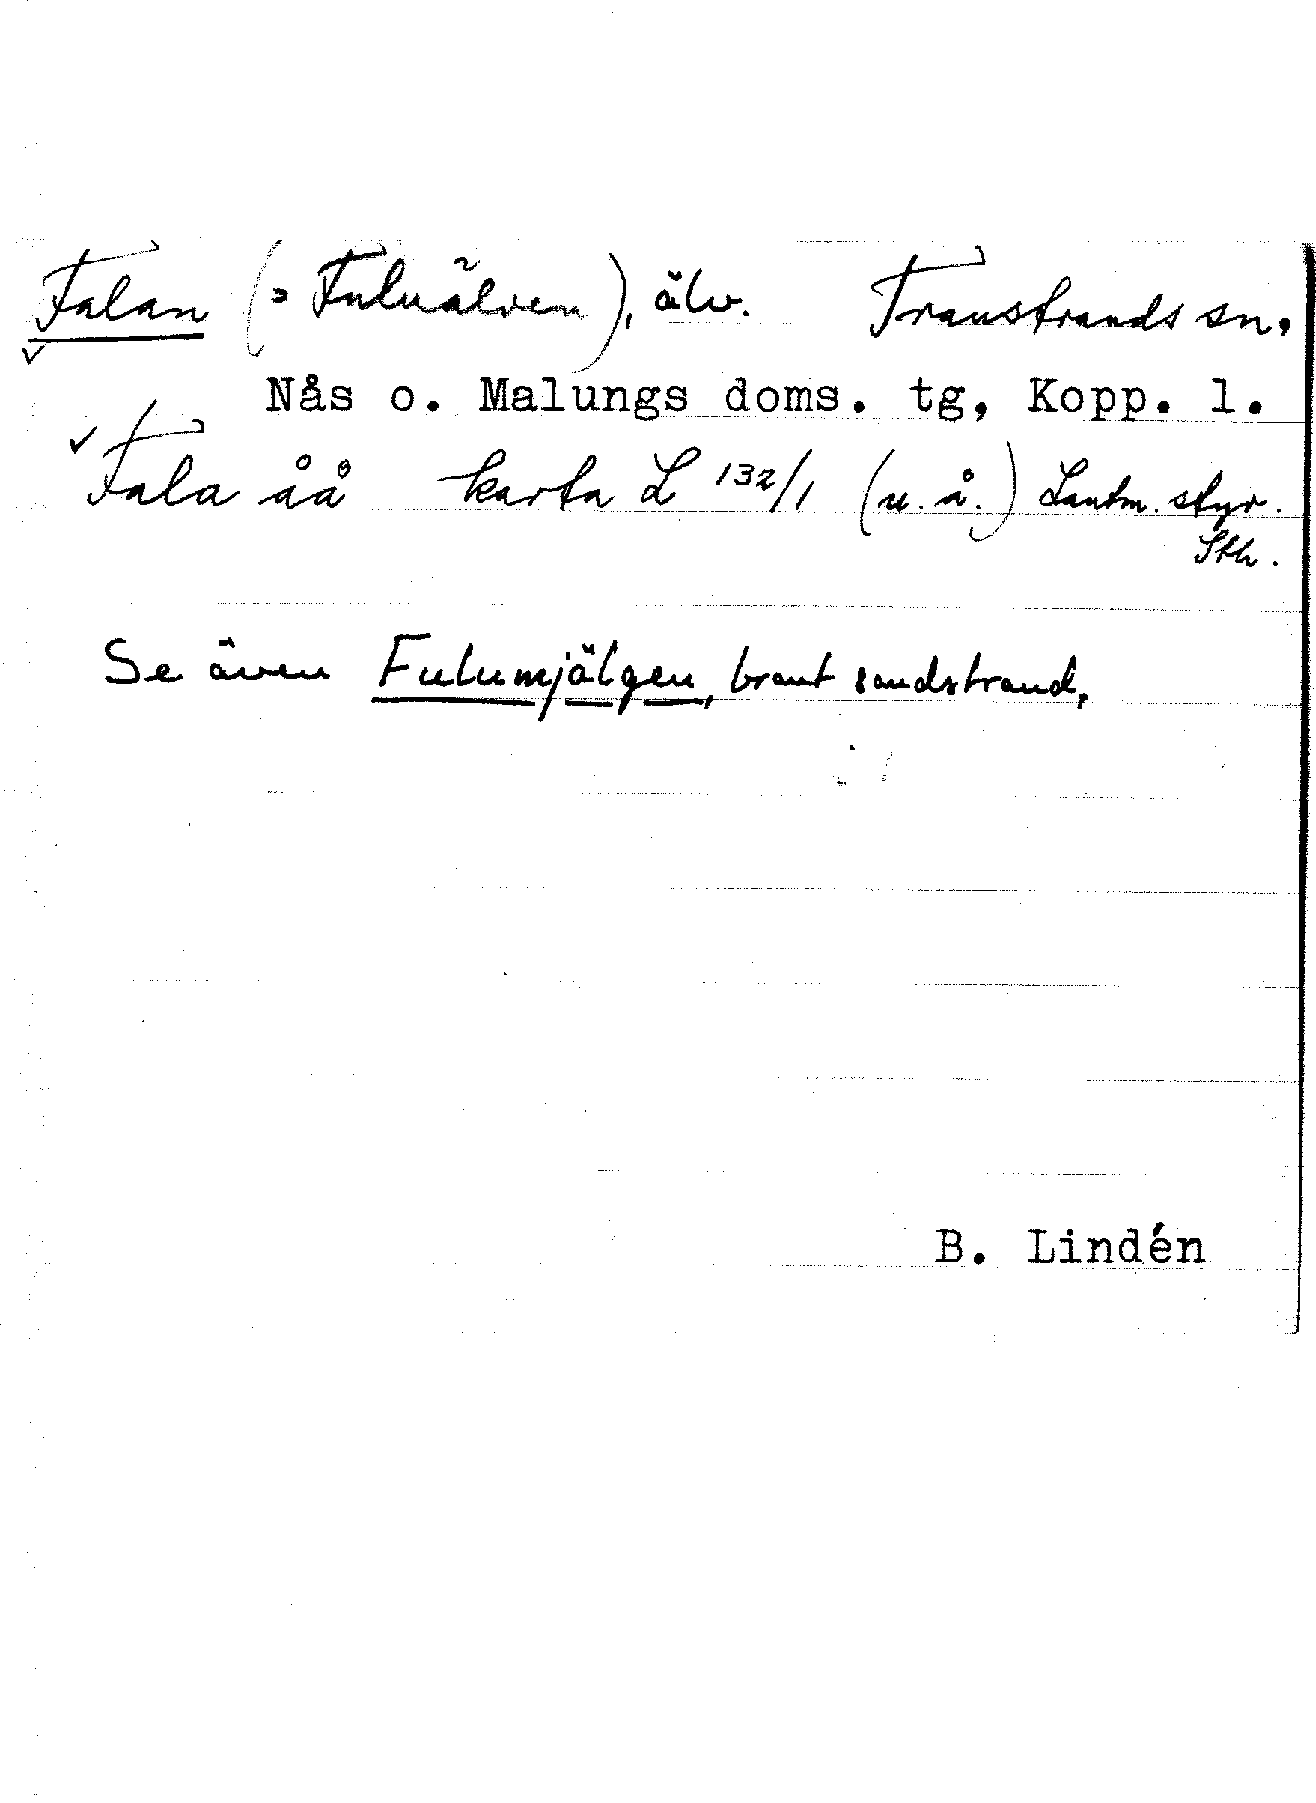 Falan (= Fuluälven), älv. Transtrands sn,
Nås o. Malungs doms. tg, Kopp. l.
Fala åå karta L 132/1 (u. å.) Lantm. styr.
Sth.
Se även Fulumjälgen, brant sandstrand,
B. Lindén